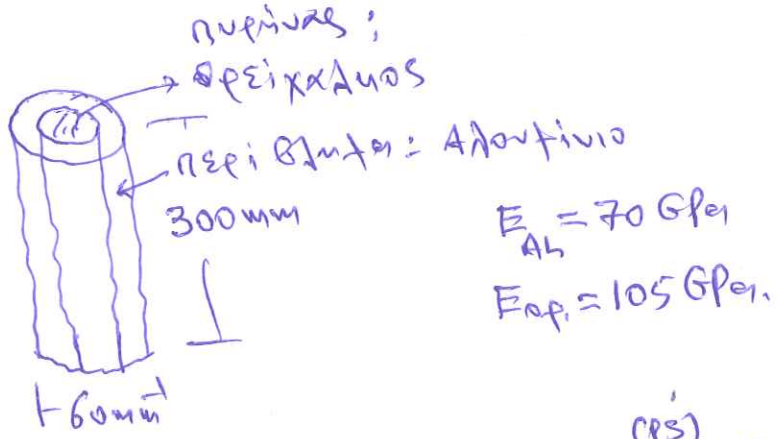 πυρήνας :
ορείχαλκος
περίβλημα : Αλουμίνιο
300mm
E_Al = 70 GPa
E_ορ. = 105 GPa.
60mm
(ps)